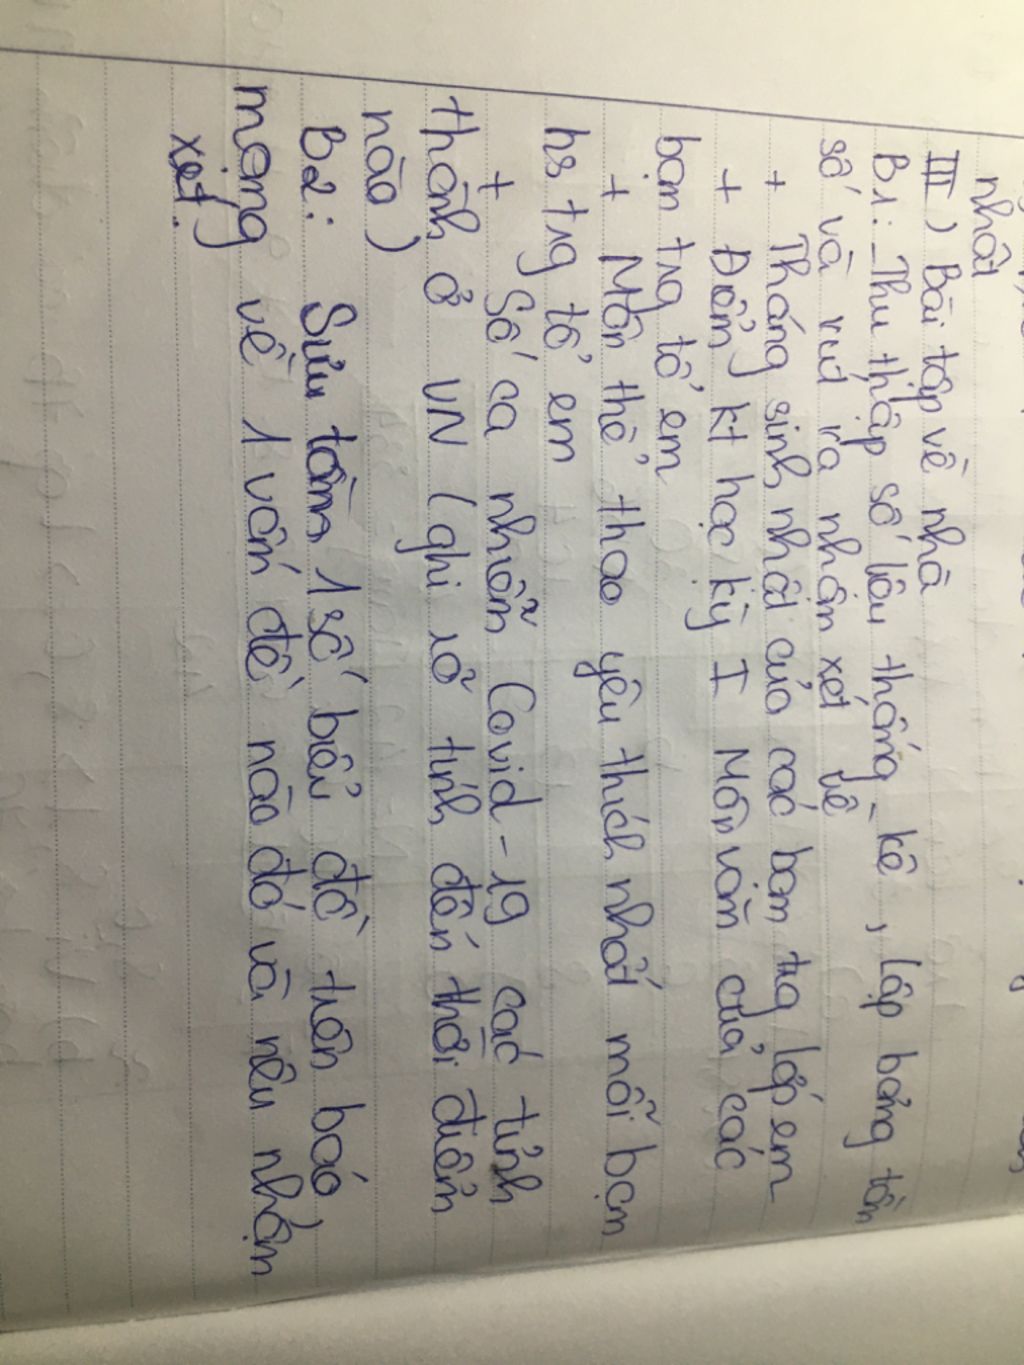 nhất
III) Bài tập về nhà
B1: Thu thập số liệu thống kê, lập bảng tần
số và rút ra nhận xét về
+ Tháng sinh nhật của các bạn trg lớp em
+ Điểm kt học kỳ I Môn văn của các
bạn trg tổ em
+ Môn thể thao yêu thích nhất mỗi bạn
hs trg tổ em
+ Số ca nhiễm Covid-19 các tỉnh
thành ở VN (ghi rõ tính đến thời điểm
nào)
B2: Sưu tầm 1 số biểu đồ trên báo,
mạng về 1 vấn đề nào đó và nêu nhận
xét.